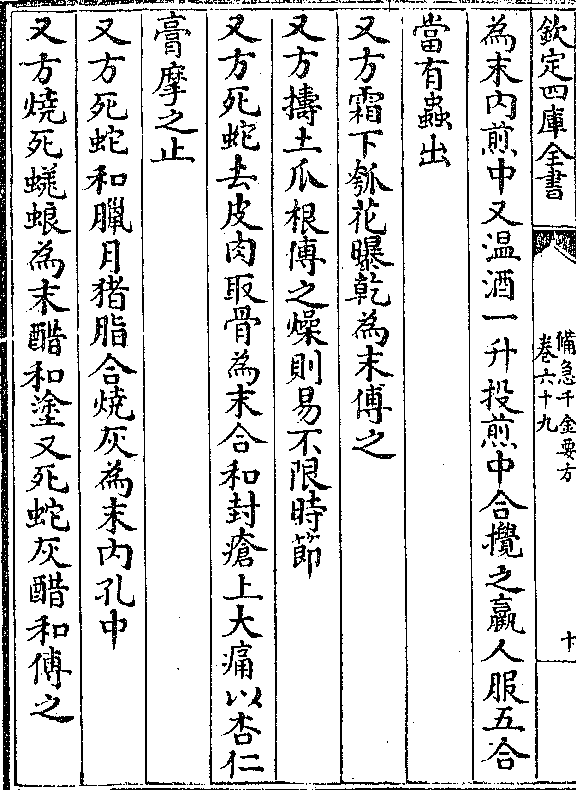 欽定四庫全書
備急千金要方
卷六十九
十
為末内煎中又温酒一升投煎中合攪之羸人服五合
當有蟲出
又方霜下瓠花曝乾為末傅之
又方擣土瓜根傅之燥則易不限時節
又方死蛇去皮肉取骨為末合和封瘡上大痛以杏仁
膏摩之止
又方死蛇和臘月猪脂合燒灰為末内孔中
又方燒死蜣蜋為末醋和塗又死蛇灰醋和傅之